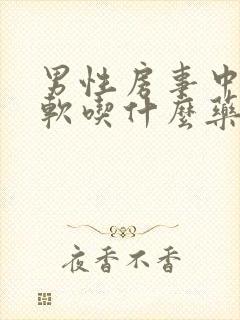 男性房事中
軟喫什麼藥
夜香不香